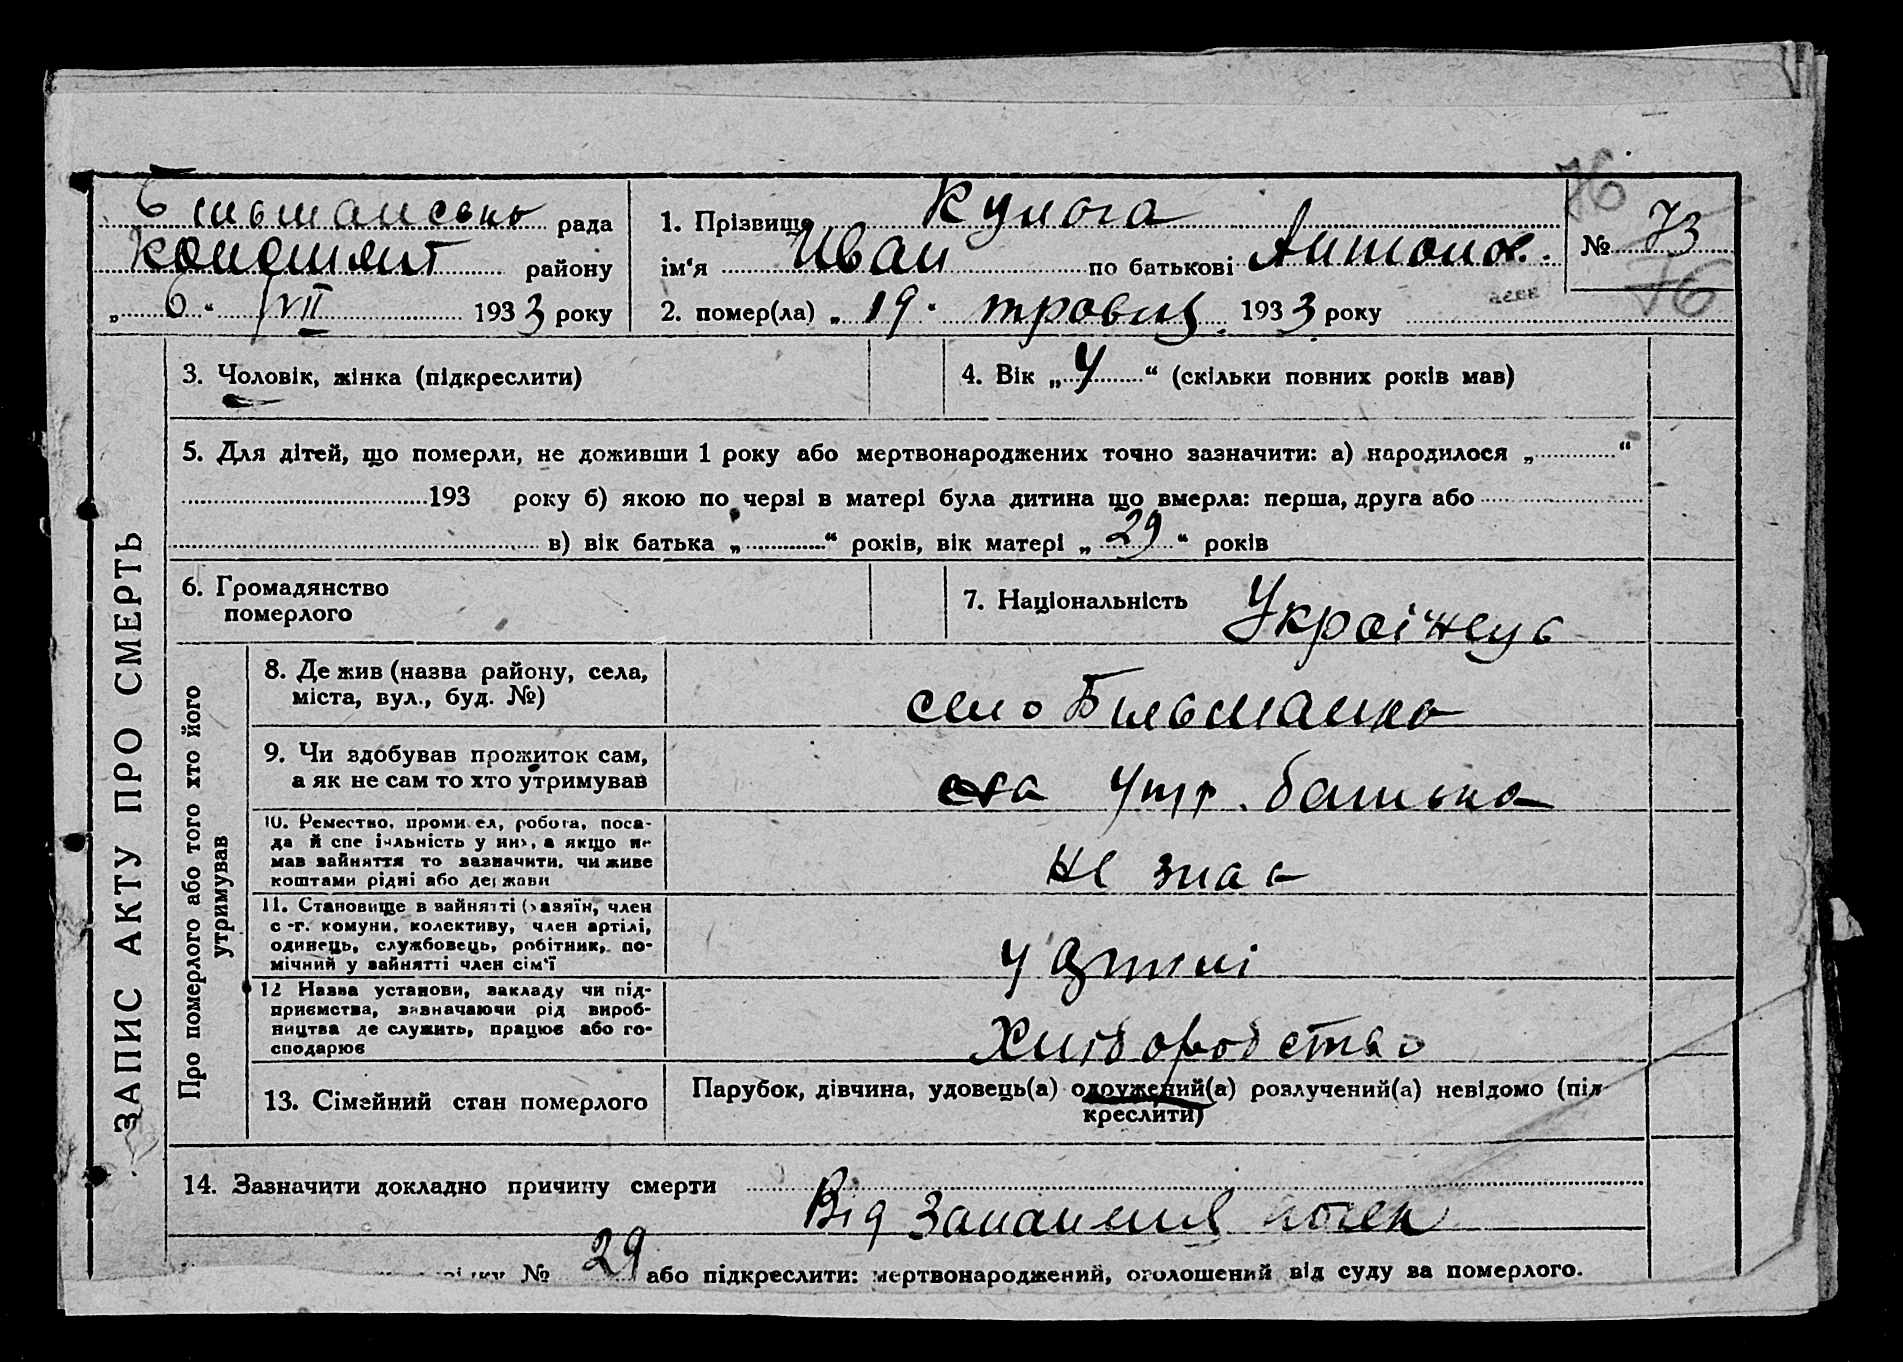 Більшансько рада
району
„ 6 “ VII 1933 року
1. Прізвище Кулога
ім‘я Иван по батькові Антонов.
2. помер(ла) „ 19 “ травня 1933 року
76
№ 73
76
ЗАПИС АКТУ ПРО СМЕРТЬ
3. Чоловік, жінка (підкреслити)
4. Вік „ 4 “ (скільки повних років мав)
5. Для дітей, що померли, не доживши 1 року або мертвонароджених точно зазначити: а) народилося „ “
193 року б) якою по черзі в матері була дитина що вмерла: перша, друга або
в) вік батька „ “ років, вік матері „ 29 “ років
6. Громадянство
померлого
7. Національність Українець
Про померлого або того хто його
утримував
8. Де жив (назва району, села,
міста, вул., буд. №)
село Більшанка
9. Чи здобував прожиток сам,
а як не сам то хто утримував
утр. батько
10. Ремество, промисел, робота, поса-
да й спеціяльність у них, а якщо не
мав зайняття то зазначити, чи живе
коштами рідні або держави
не знає
11. Становище в зайнятті (хазяїн, член
с-г. комуни, колективу, член артілі,
одинець, службовець, робітник, по-
мічний у зайнятті член сім‘ї
у артілі
12 Назва установи, закладу чи під-
приємства, визначаючи рід вироб-
ництва де служить, працює або го-
сподарює
Хліборобство
13. Сімейний стан померлого
Парубок, дівчина, удовець(а) одружений(а) розлучений(а) невідомо (під-
креслити)
14. Зазначити докладно причину смерти
Від запалення легень
№ 29 або підкреслити: мертвонароджений, оголошений від суду за померлого.